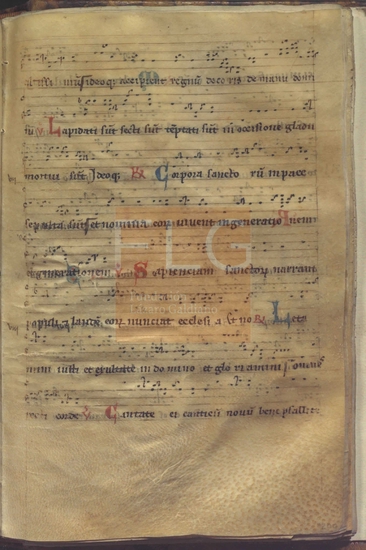 mūsideoq; accipient regnum decoris de manu domi
ni ℣ Lapidati sūt secti sūt tēptati sūt in occisione gladii
mortui sūt. Ideoq; ℟ Corpora sancto rū in pace
sepulta sūt et nomina eoꝝ vivent in generatio nem
et generationem ℣ Sapienciam sanctoꝝ narrant
populi et laudē eoꝝ nunciat ecclesi a Et no ℟ Leta
mini iusti et exultate in do mino et glo riamini
recti corde ℣ Cantate ei canticū novū bene psallite
FLG